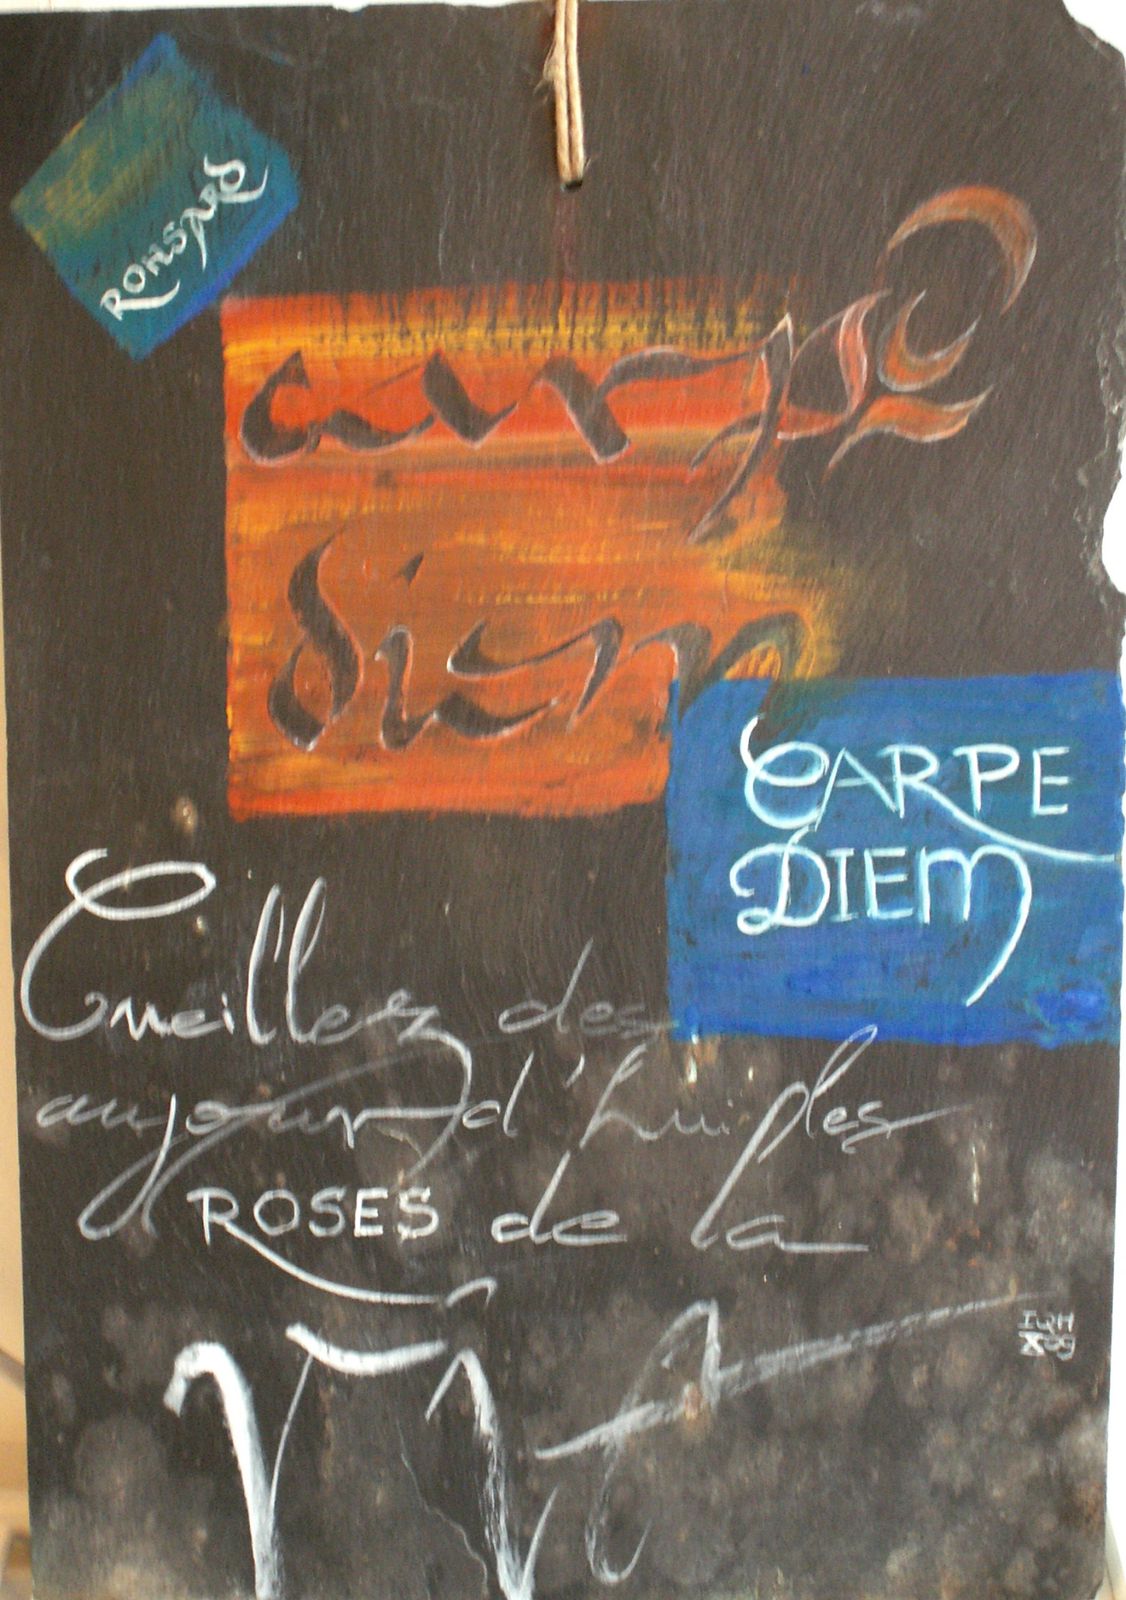 RONSARD
carpe
diem
CARPE
DIEM
Cueillez des
aujourd'hui les
ROSES de la
Vie
IQH
X09